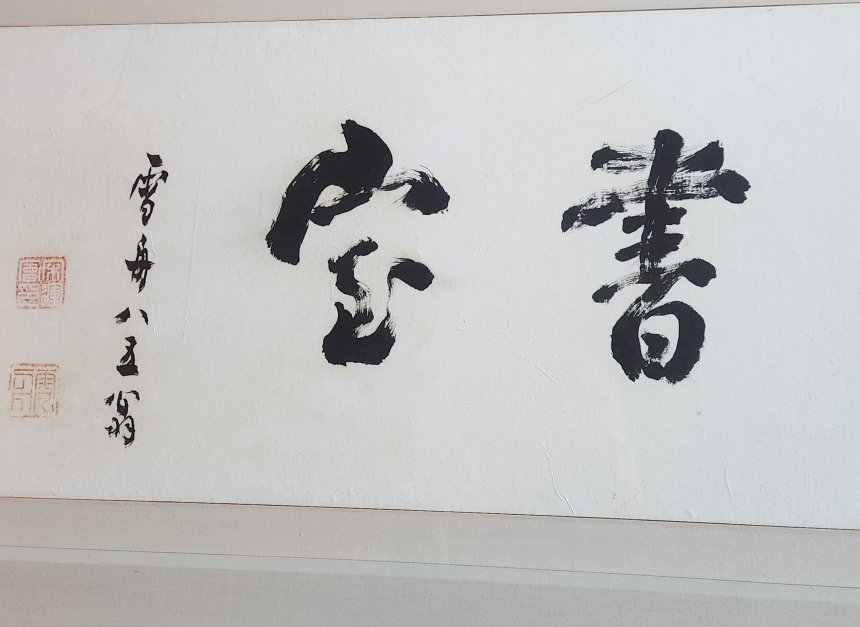 書室
雪舟八五翁